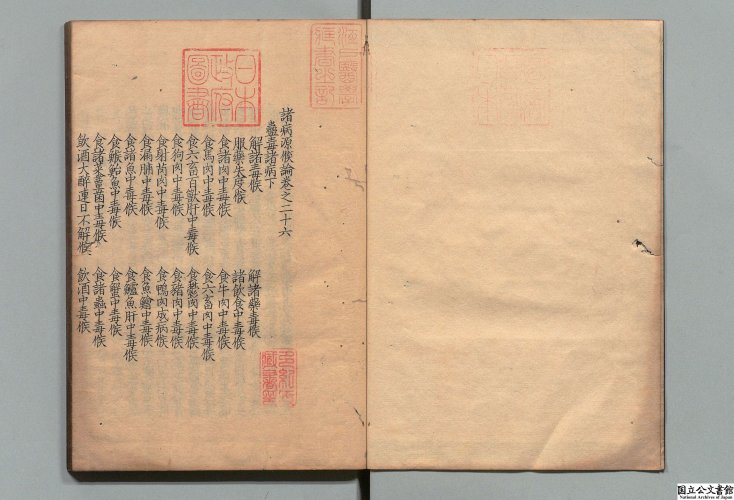 江戸醫學
藏書之記
日本
政府
圖書
諸病源候論卷之二十六
蠱毒諸病下
解諸毒候 解諸藥毒候
服藥失度候 諸飲食中毒候
食諸肉中毒候 食牛肉中毒候
食馬肉中毒候 食六畜肉中毒候
食六畜百獸肝中毒候 食鬱肉中毒候
食狗肉中毒候 食猪肉中毒候
食射菵肉中毒候 食鴨肉成病候
食漏脯中毒候 食魚鱠中毒候
食諸魚中毒候 食鱸魚肝中毒候
食鯸鮐魚中毒候 食蟹中毒候
食諸菜蕈菌中毒候 食諸蟲中毒候
飲酒大醉連日不解候 飲酒中毒候
多紀氏
藏書印
国立公文書館
National Archives of Japan